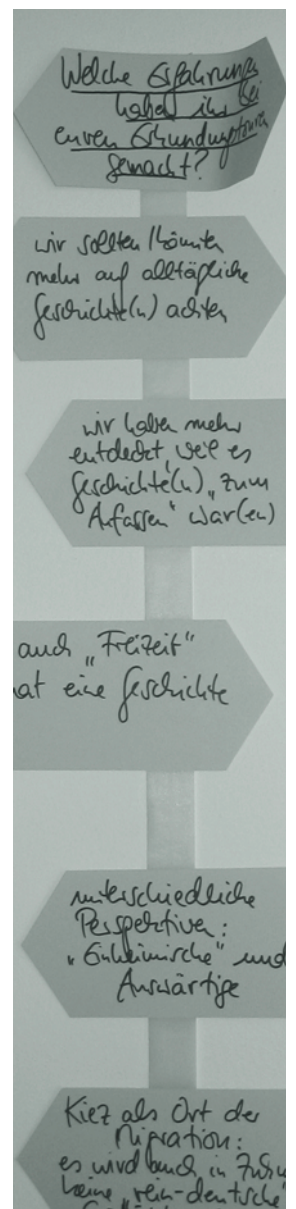 Welche Erfahrungen
haben ihr bei
euren Erkundungstouren
gemacht?
wir sollten/könnten
mehr auf alltägliche
Geschichte(n) achten
wir haben mehr
entdeckt, weil es
Geschichte(n) „zum
Anfassen" war(en)
auch „Freizeit"
hat eine Geschichte
unterschiedliche
Perspektiven:
„Einheimische" und
Auswärtige
Kiez als Ort der
Migration:
es wird auch in
keine „rein-deutsche"